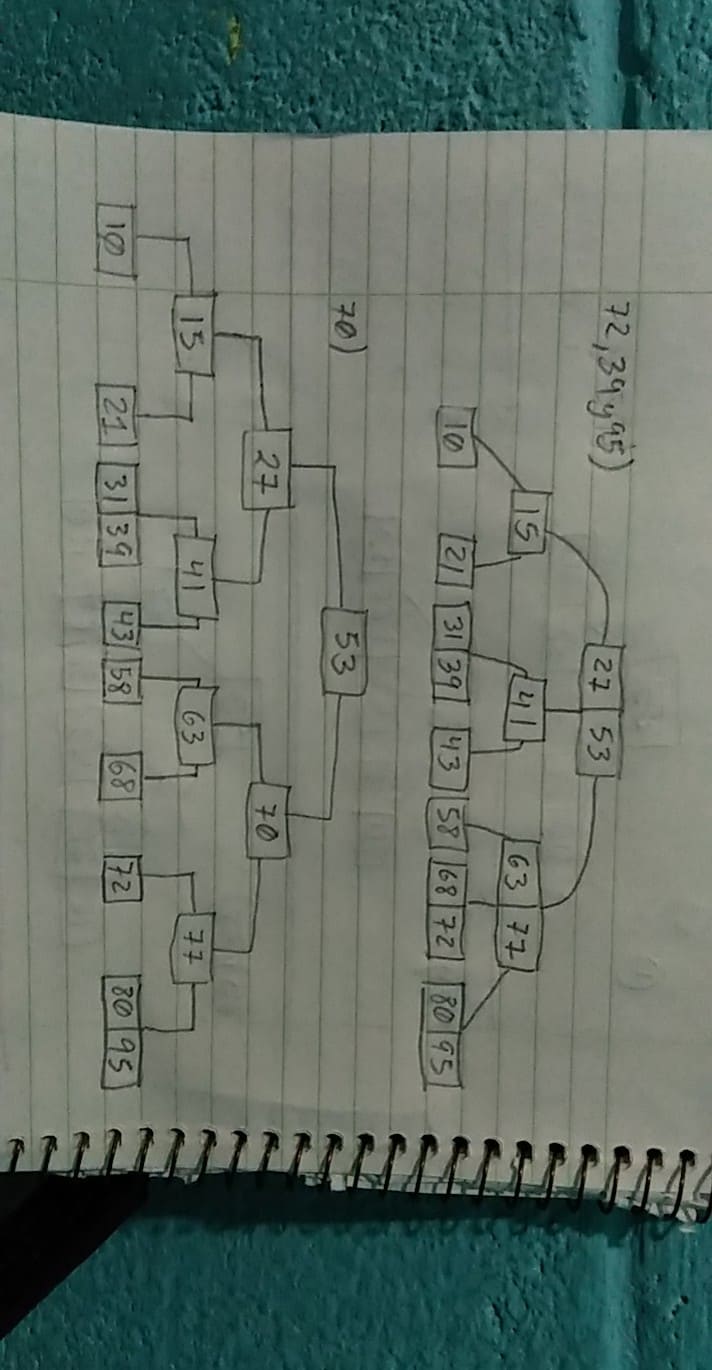 72,39 y 95)
27 53
15 41 63 77
10 21 31 39 43 58 68 72 80 95
70)
53
27 70
15 41 63 77
10 21 31 39 43 58 68 72 80 95